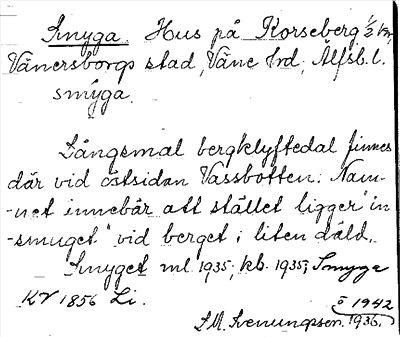 Smyga. Hus på Korseberg 1/2 km,
Vänersborgs stad, Väne hrd, Älfsb. l.
smyga.
Långsmal bergklyftedal finnes
där vid östsidan Vassbotten. Nam-
-net innebär att stället ligger "in-
-smuget" vid berget i liten däld.
Smyget ml. 1935; kb. 1935; Smyga
KV 1856 Li.
ö 1942
S.M. Svenungsson. 1936.